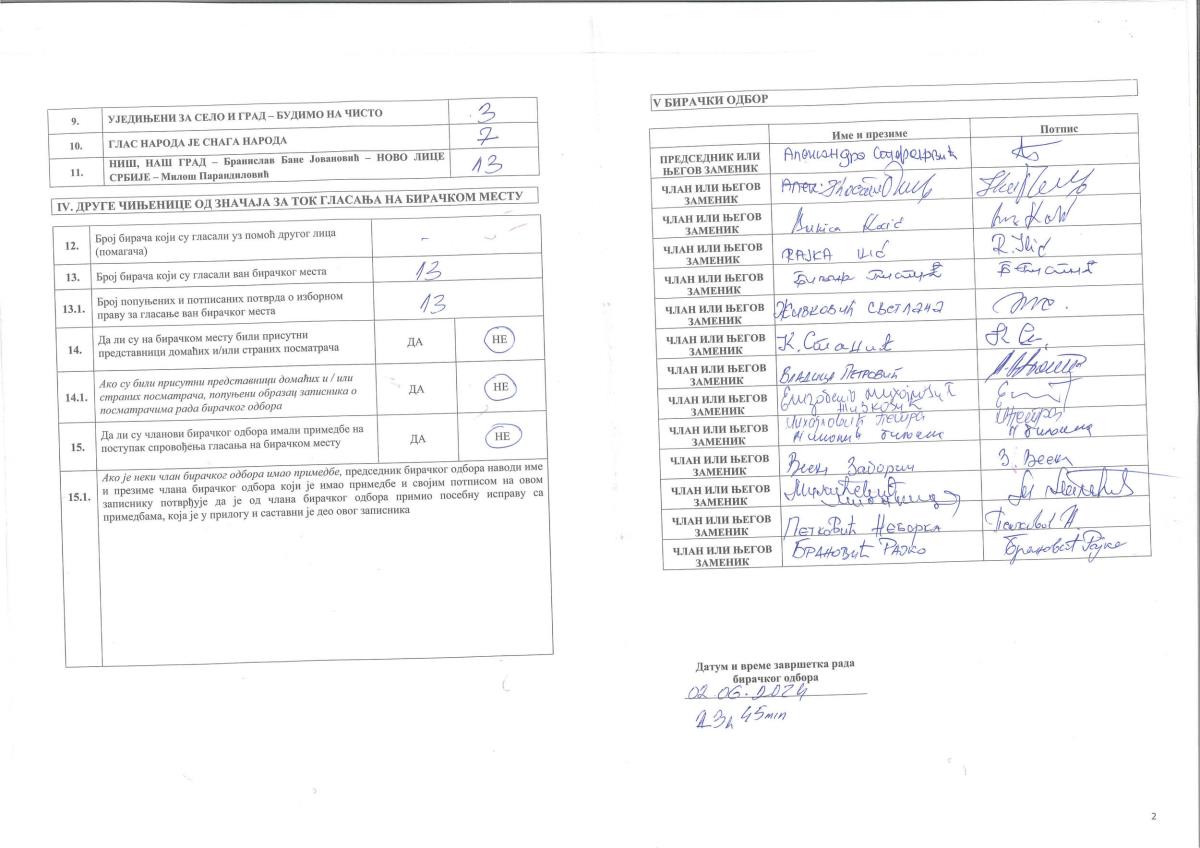 9. УЈЕДИЊЕНИ ЗА СЕЛО И ГРАД – БУДИМО НА ЧИСТО 3
10. ГЛАС НАРОДА ЈЕ СНАГА НАРОДА 7
11. НИШ, НАШ ГРАД – Бранислав Бане Јовановић – НОВО ЛИЦЕ
СРБИЈЕ – Милош Парандиловић 13
IV. ДРУГЕ ЧИЊЕНИЦЕ ОД ЗНАЧАЈА ЗА ТОК ГЛАСАЊА НА БИРАЧКОМ МЕСТУ
12. Број бирача који су гласали уз помоћ другог лица
(помагача) -
13. Број бирача који су гласали ван бирачког места 13
13.1. Број попуњених и потписаних потврда о изборном
праву за гласање ван бирачког места 13
14. Да ли су на бирачком месту били присутни
представници домаћих и/или страних посматрача ДА НЕ
14.1. Ако су били присутни представници домаћих и / или
страних посматрача, попуњени образац записника о
посматрачима рада бирачког одбора ДА НЕ
15. Да ли су чланови бирачког одбора имали примедбе на
поступак спровођења гласања на бирачком месту ДА НЕ
15.1. Ако је неки члан бирачког одбора имао примедбе, председник бирачког одбора наводи име
и презиме члана бирачког одбора који је имао примедбе и својим потписом на овом
записнику потврђује да је од члана бирачког одбора примио посебну исправу са
примедбама, која је у прилогу и саставни је део овог записника
V БИРАЧКИ ОДБОР
Име и презиме Потпис
ПРЕДСЕДНИК ИЛИ
ЊЕГОВ ЗАМЕНИК
ЧЛАН ИЛИ ЊЕГОВ
ЗАМЕНИК
ЧЛАН ИЛИ ЊЕГОВ
ЗАМЕНИК
ЧЛАН ИЛИ ЊЕГОВ
ЗАМЕНИК РАЈКА R. Ilić
ЧЛАН ИЛИ ЊЕГОВ
ЗАМЕНИК
ЧЛАН ИЛИ ЊЕГОВ
ЗАМЕНИК ЖИВКОВИЋ СВЕТЛАНА
ЧЛАН ИЛИ ЊЕГОВ
ЗАМЕНИК
ЧЛАН ИЛИ ЊЕГОВ
ЗАМЕНИК ВЛАДИЦА ПЕТРОВИЋ
ЧЛАН ИЛИ ЊЕГОВ
ЗАМЕНИК
ЧЛАН ИЛИ ЊЕГОВ
ЗАМЕНИК
ЧЛАН ИЛИ ЊЕГОВ
ЗАМЕНИК
ЧЛАН ИЛИ ЊЕГОВ
ЗАМЕНИК
ЧЛАН ИЛИ ЊЕГОВ
ЗАМЕНИК ПЕТКОВИЋ
ЧЛАН ИЛИ ЊЕГОВ
ЗАМЕНИК БРАНОВИЋ РАЈКО Брановић Рајко
Датум и време завршетка рада
бирачког одбора
02.06.2024
23h 45min
2